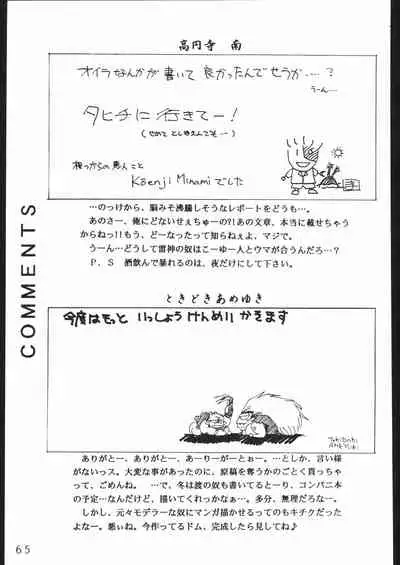 高円寺 南
オイラなんかが書いて 良かったんでせうか…..?
うーん……
タヒチに行きてー!
根っからの悪人こと
KenJi Minami でした
…のっけから、脳みそ沸騰しそうなレポートをどうも…。
あのさー、俺にどないせぇちゅーの?!あの文章、本当に載せちゃう
からねっ!!もう、どーなったって知らねぇよ、マジで。
うーん…どうして雷神の奴はこーゆー人とウマが合うんだろ…?
P.S 酒飲んで暴れるのは、夜だけにして下さい。
COMMENTS
ときどきあめゆき
今度はもっと いっしょうけんめい かきます
ありがとー、ありがとー、あーりーがーとぉー。…としか、言い様
がないっス。大変な事があったのに、原稿を奪うかのごとく貰っちゃ
って、ごめんね。 …で、冬は彼の奴も書いてるとーり、コンパニ本
の予定…なんだけど、描いてくれっかなぁ…。多分、無理だろなー。
しかし、元々モデラーな奴にマンガ描かせるってのもキチクだった
よなー。悪ぃね。今作ってるドム、完成したら見してね♪
65